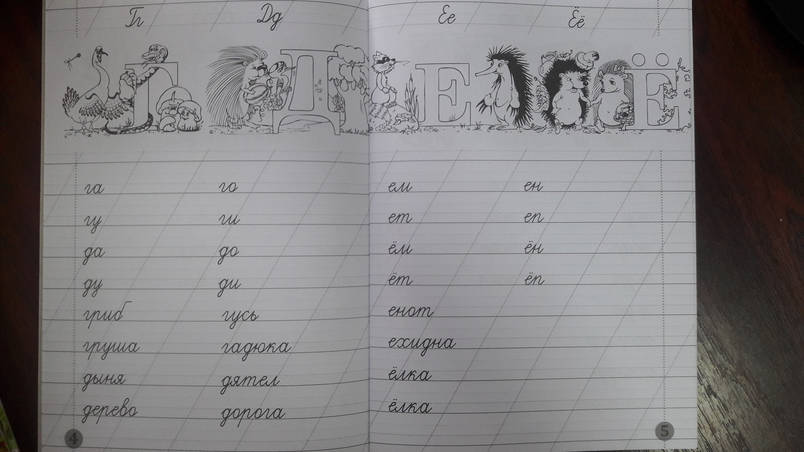 Гг Дд
Г Д
га го
гу ги
да до
ду ди
гриб гусь
груша гадюка
дыня дятел
дерево дорога
4
Ее Ёё
Е Ё
ем ен
ет еп
ём ён
ёт ёп
енот
ехидна
ёлка
ёлка
5